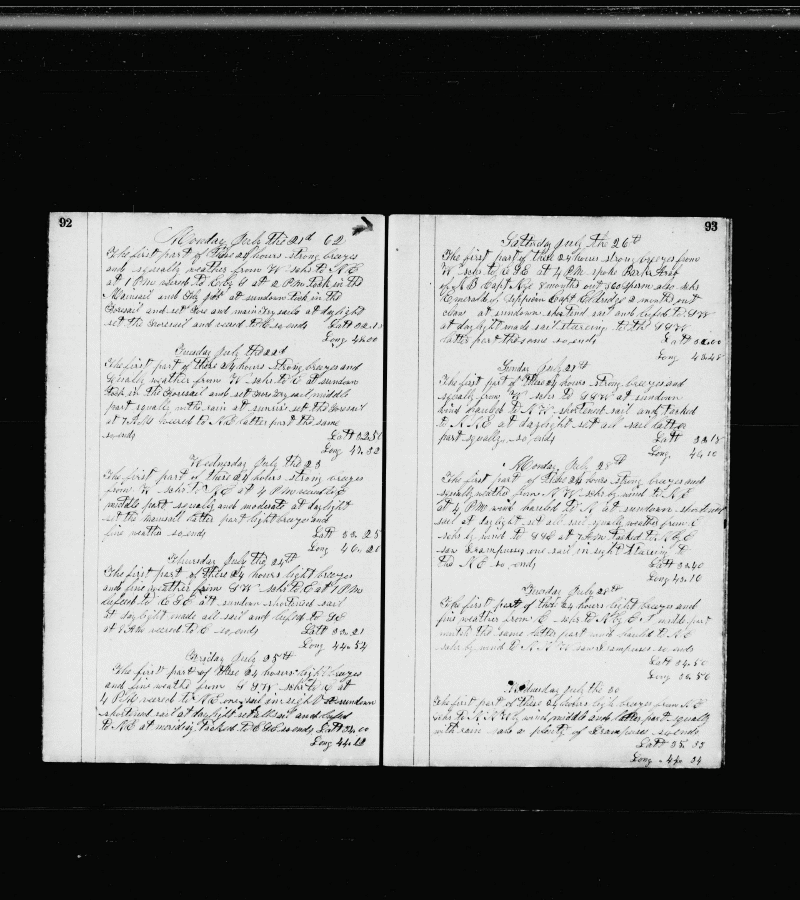 92
Monday July the 21st 62
The first part of these 24 hours strong breezes
and squally weather from W schr to N E
at 1 P M weered to E by S at 2 P M took in the
Mainsail and Fly jib at sundown took in the
Foresail and set Fore and main Try sails at daylight
set the Foresail and weered to N E so ends Latt 32.1
Long 42.00
Tuesday July the 22d
The first part of these 24 hours strong breezes and
squally weather from W schr to E at sundown
took in the Foresail and set Fore try sail middle
part squally with rain at sunrise set the Foresail
at 7 weered to N E latter part the same
so ends Latt 32.50
Long 41.32
Wednesday July the 23
The first part of these 24 hours strong breezes
from W schr to at 4 P M
middle part squally and moderate at daylight
set the mainsail latter part light breezes and
fine weather so ends Latt 33.25
Long 40.20
Thursday July the 24th
The first part of these 24 hours light breezes
and fine weather from S W schr to E at 1 P M
luffed to E S E att sundown shortened sail
at daylight made all sail and luffed to S E
at 8 A M weered to E so ends Latt 33.21
Long 44.54
Friday July 25th
The first part of these 24 hours light breezes
and fine weather from S S W schr to E at
4 P M weered to N E one sail in sight at sundown
shortened sail at daylight set all sail and luffed
to N E at meridian tacked to E S E so ends Latt 34.00
Long 44.12
93
Saturday July the 26th
The first part of these 24 hours strong breezes from
W schr to E S E at 4 P M spoke Bark
of N B Capt 8 months out 360 sperm also schr
Emerald of Sippican Capt Eldridge 2 months out
clean at sundown shortend sail and luffed to S W
at daylight made sail steering to the S S W
latter part the same so ends Latt 32.00
Long 43.28
Sunday July 27th
The first part of these 24 hours strong breezes and
squally from W schr to S S W at sundown
wind hauled to N W shortened sail and tacked
to N N E at daylight set all sail latter
part squally so ends Latt 33.18
Long 44.10
Monday July 28th
The first part of these 24 hours strong breezes and
squally weather from N W schr by wind to N E
at 4 P M wind hauled to N at sundown shortened
sail at daylight set all sail squally weather from E
schr by wind to S S E at 7 A M tacked to N by E
saw Grampuses one sail in sight steering to
the N E so ends Latt 33.40
Long 43.10
Tuesday July 29th
The first part of these 24 hours light breezes and
fine weather from E schr to N by E middle part
much the same latter part wind hauled to N E
schr by wind to N N W saw Grampuses so ends
Latt 34.50
Long 43.56
Wednesday July the 30
The first part of these 24 hours light breezes from N E
schr to N N W by wind middle and latter part squally
with rain saw a plenty of Grampuses so ends
Latt 35.33
Long 44.34